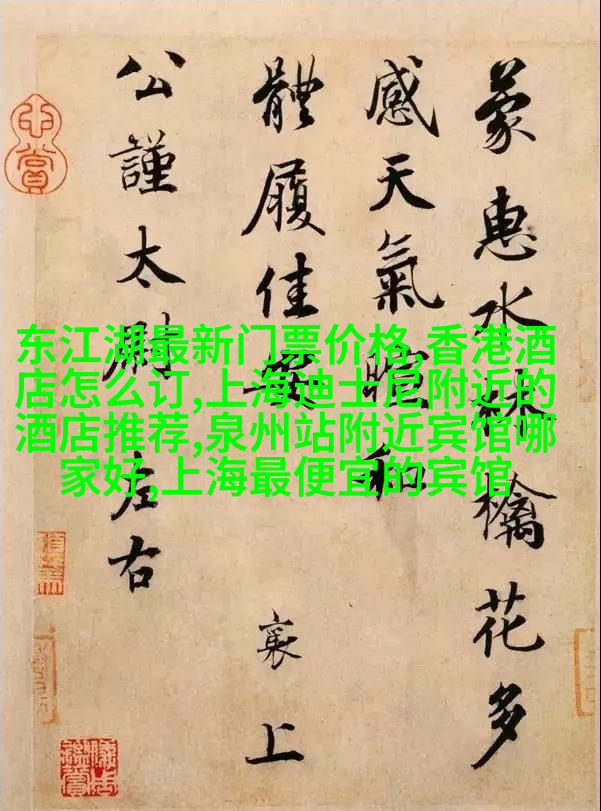 东江湖最新门票价格,香港酒
店怎么订,上海迪士尼附近的
酒店推荐,泉州站附近宾馆哪
家好,上海最便宜的宾馆
蒙惠水林檎花多
感天氣暄和
體履佳
襄上
公謹太尉左右